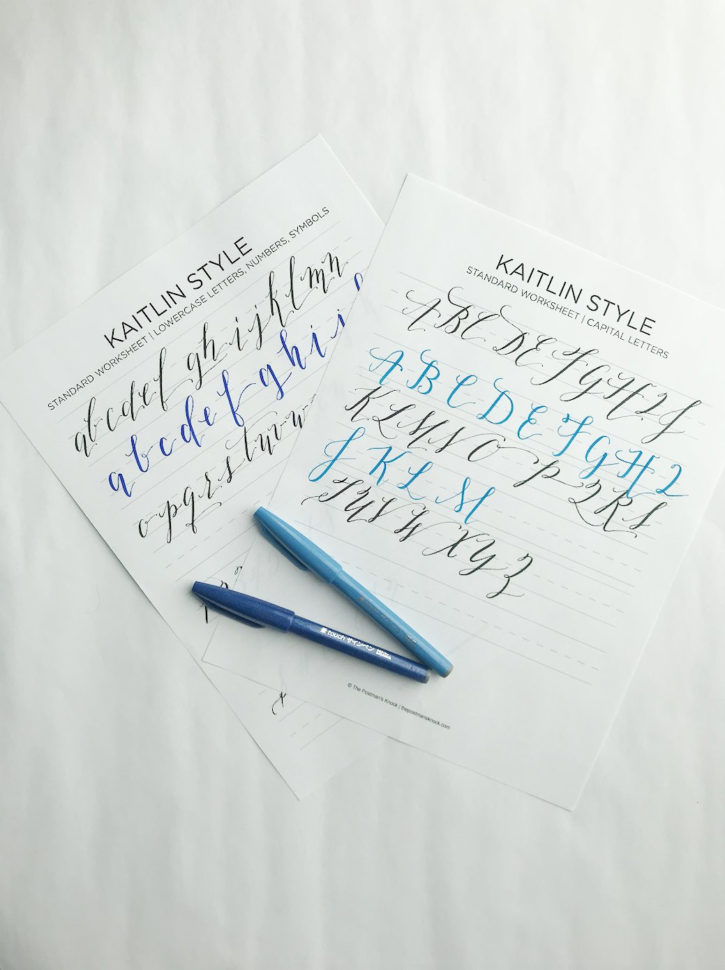 KAITLIN STYLE
STANDARD WORKSHEET | LOWERCASE LETTERS, NUMBERS, SYMBOLS
a b c d e f g h i j k l m n
a b c d e f g h i j
o p q r s t u v w
KAITLIN STYLE
STANDARD WORKSHEET | CAPITAL LETTERS
A B C D E F G H I J
A B C D E F G H I
K L M N O P Q R S
J K L M
T U V W X Y Z
touch サインペン
© The Postman's Knock | thepostmansknock.com